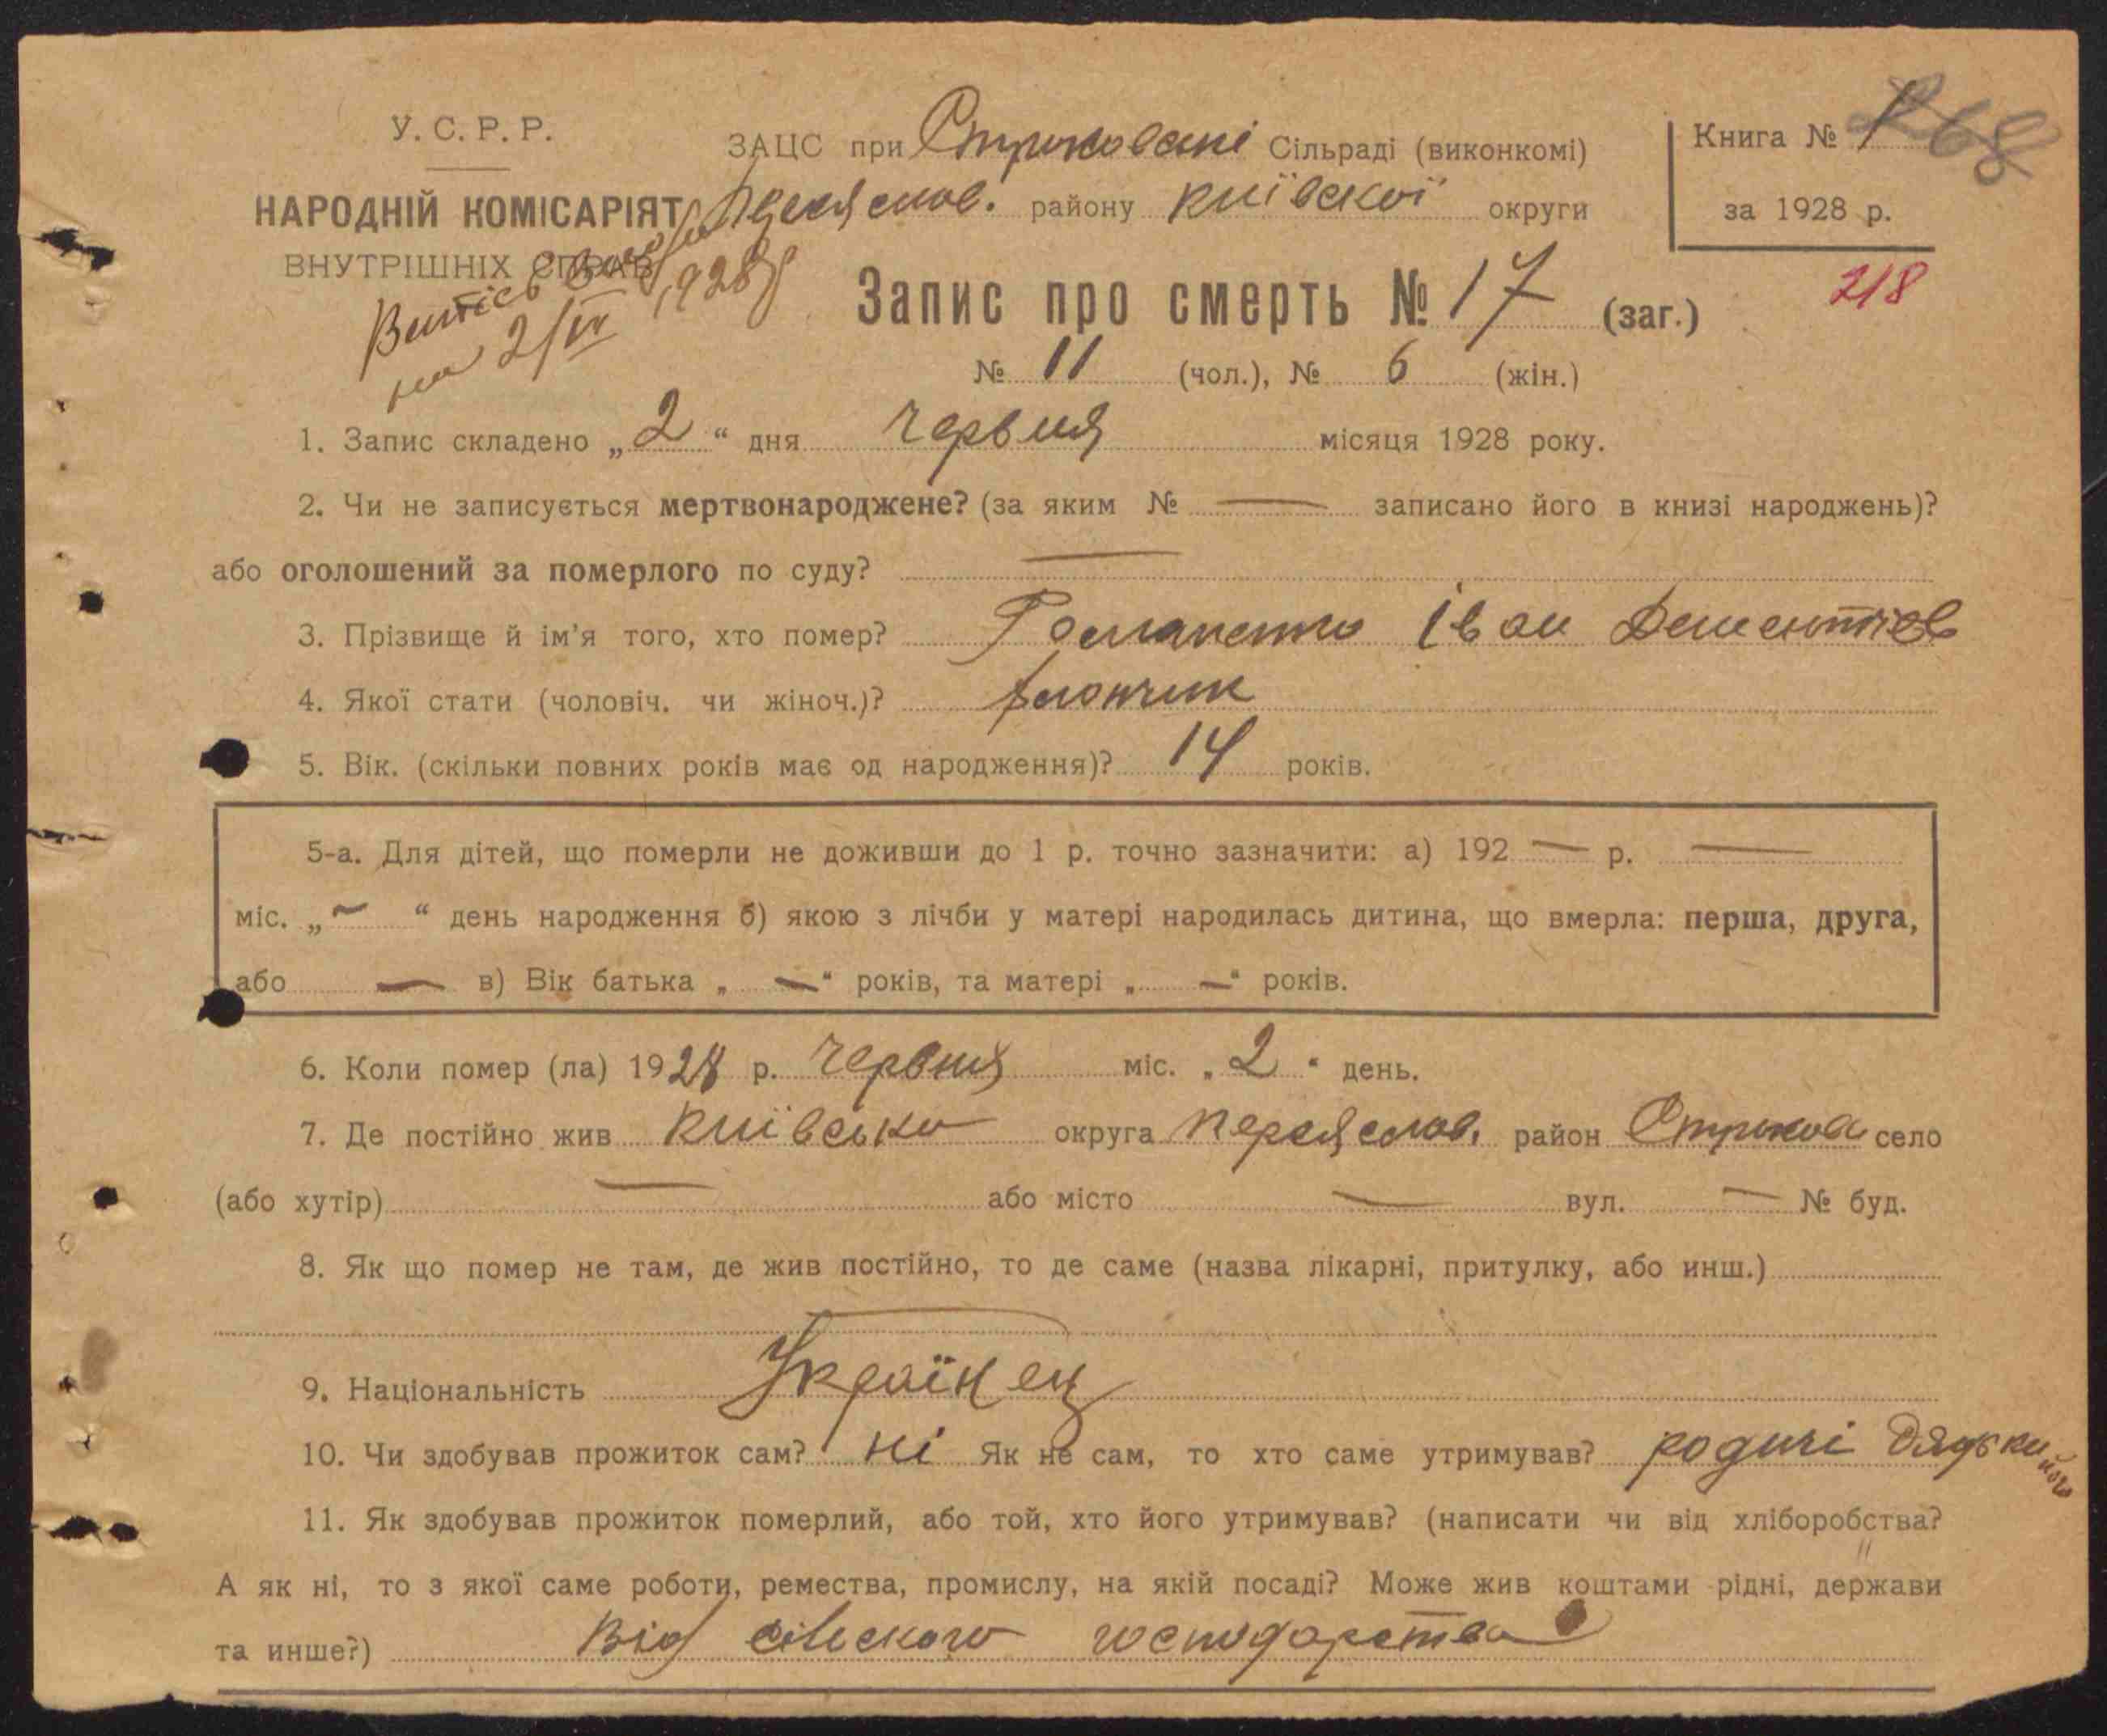 У. С. Р. Р.
НАРОДНІЙ КОМІСАРІЯТ
ВНУТРІШНІХ СПРАВ
на 2/IV 1928 р
ЗАЦС при Строковскі Сільраді (виконкомі)
Переяслов. району Київскої округи
Книга № 1
за 1928 р.
268
218
Запис про смерть № 17 (заг.)
№ 11 (чол.), № 6 (жін.)
1. Запис складено „ 2 “ дня Червня місяця 1928 року.
2. Чи не записується мертвонароджене? (за яким № — записано його в книзі народжень)?
або оголошений за померлого по суду? —
3. Прізвище й ім'я того, хто помер? Іван Дементіев
4. Якої стати (чоловіч. чи жіноч.)? хлопчик
5. Вік. (скільки повних років має од народження)? 14 років.
5-а. Для дітей, що померли не доживши до 1 р. точно зазначити: а) 192 — р. —
міс. „ — “ день народження б) якою з лічби у матері народилась дитина, що вмерла: перша, друга,
або — в) Вік батька „ — “ років, та матері „ — “ років.
6. Коли помер (ла) 1928 р. Червня міс. „ 2 “ день.
7. Де постійно жив Київсько округа Переяслов. район Строкова село
(або хутір) — або місто — вул. — № буд.
8. Як що помер не там, де жив постійно, то де саме (назва лікарні, притулку, або инш.)
—
9. Національність Українец
10. Чи здобував прожиток сам? Ні Як не сам, то хто саме утримував? родичі Дядьки його
11. Як здобував прожиток померлий, або той, хто його утримував? (написати чи від хліборобства?
А як ні, то з якої саме роботи, ремества, промислу, на якій посаді? Може жив коштами рідні, держави
та инше?) Від сілского господарства